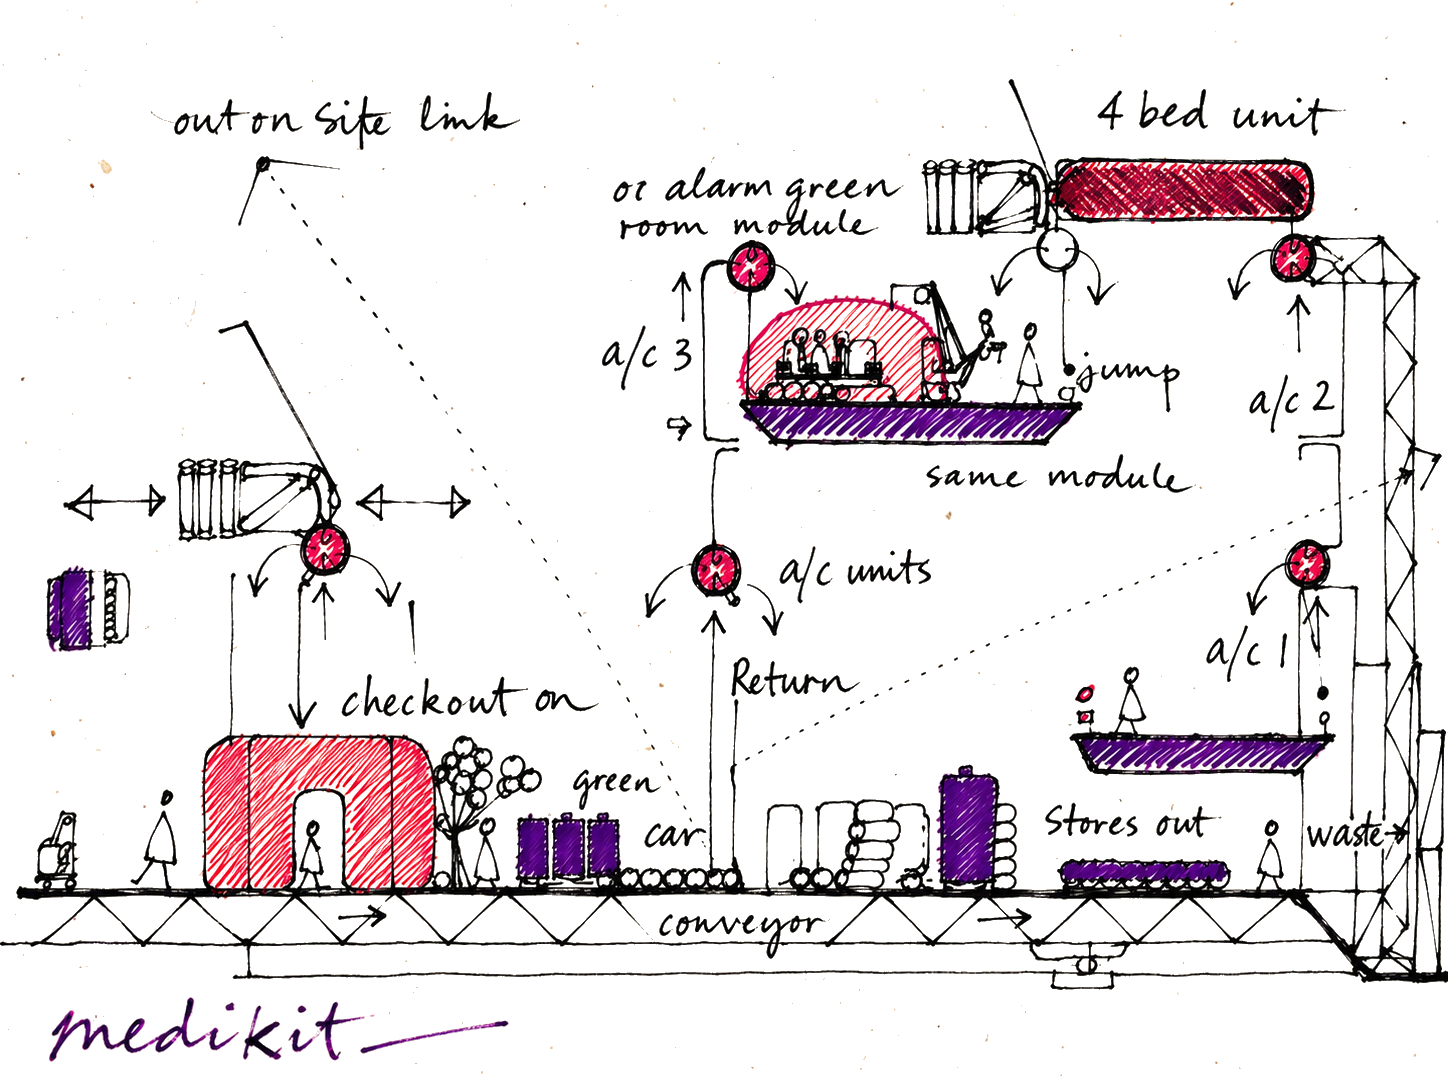 out on site link
4 bed unit
or alarm green
room module
a/c 3
jump
a/c 2
same module
a/c units
a/c 1
Return
checkout on
green
car
stores out
waste
conveyor
medikit